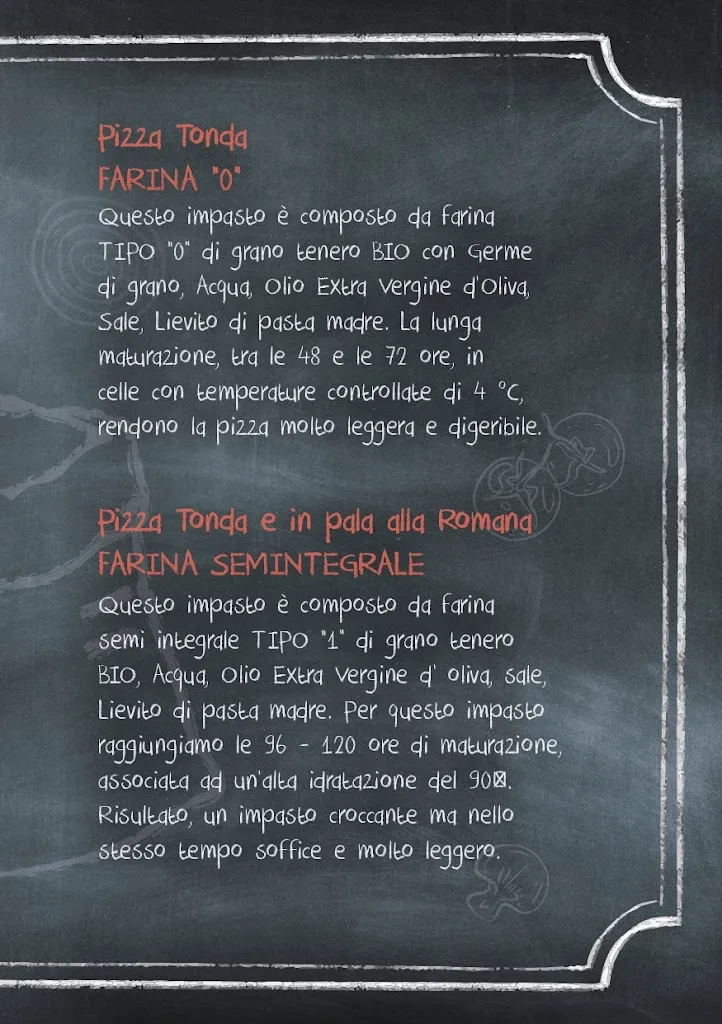 Pizza Tonda
FARINA "0"
Questo impasto è composto da farina
TIPO "0" di grano tenero BIO con Germe
di grano, Acqua, Olio Extra Vergine d'Oliva,
Sale, Lievito di pasta madre. La lunga
maturazione, tra le 48 e le 72 ore, in
celle con temperature controllate di 4 °C,
rendono la pizza molto leggera e digeribile.
Pizza Tonda e in pala alla Romana
FARINA SEMINTEGRALE
Questo impasto è composto da farina
semi integrale TIPO "1" di grano tenero
BIO, Acqua, Olio Extra Vergine d' oliva, sale,
Lievito di pasta madre. Per questo impasto
raggiungiamo le 96 - 120 ore di maturazione,
associata ad un'alta idratazione del 90☒.
Risultato, un impasto croccante ma nello
stesso tempo soffice e molto leggero.